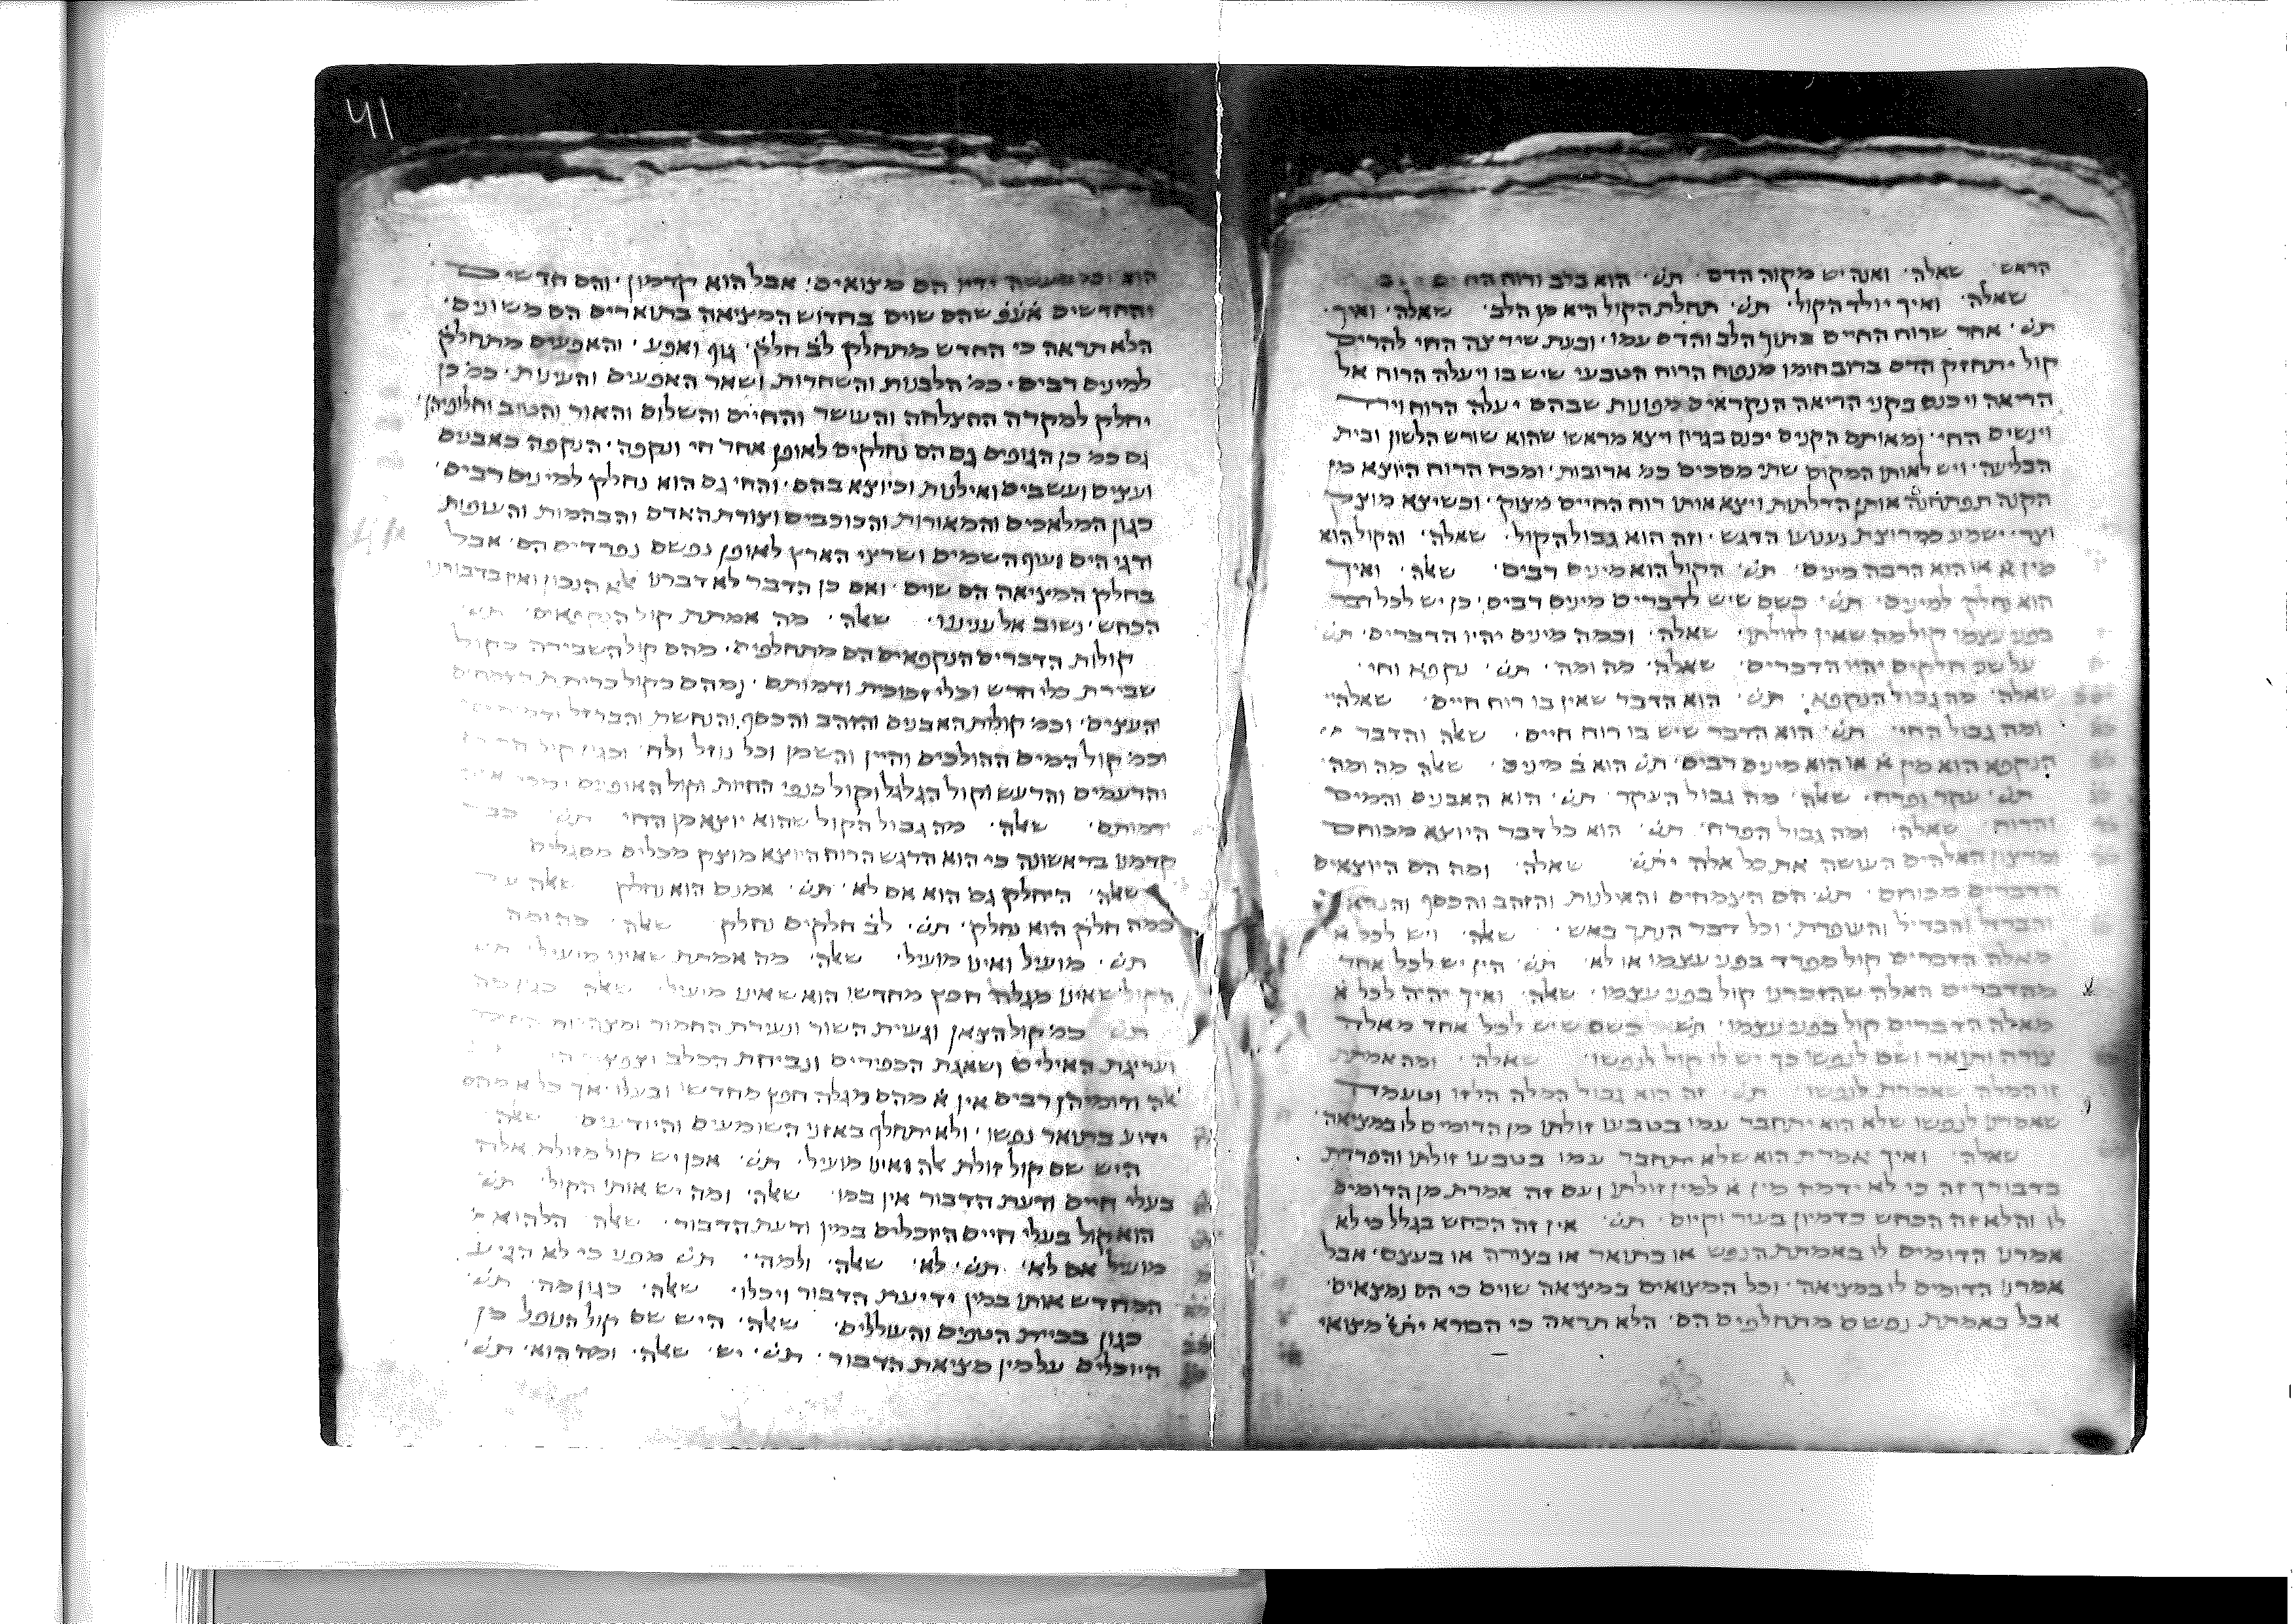 הראש׳ שאלה׳ ואנה יש מקוה הדם׳ תש׳ הוא בלב ורוח
שאלה׳ ואיך יולד הקול׳ תש׳ תחלת הקול היא מן הלב׳ שאלה׳ ואיך׳
תש׳ אחר שרוח החיים בתוך הלב והדם עמו׳ ובעת שירצה החי להרים
קול יתחזק הדם ברוב חומו מנפוח הרוח הטבעי שיש בו ויעלה הרוח אל
הריאה ויכנס בקני הריאה הנקראים מפוגות שבהם יעלה הרוח וירד
וינשים החי׳ ומאותם הקנים יכנס בגרון ויצא מראשו שהוא שורש הלשון ובית
הבליעה׳ ויש לאותו המקום שתי מסכים כמ ארובות׳ ומכח הרוח היוצא מן
הקנה הדלתות ויצא אותו רוח החיים מצוק׳ וכשיצא מוצק
וצר׳ ישמע הדגש׳ וזה הוא גבול הקול׳ שאלה׳ והקול הוא
מין א או הוא הרבה מינים׳ תש׳ הקול הוא מינים רבים׳ שאלה׳ ואיך
הוא נחלק למינים׳ תש׳ כשם שיש לדברים מינים רבים׳ כן יש לכל דבר
בפני עצמו קול מה שאין לזולתו׳ שאלה׳ וכמה מינים יהיו הדברים׳ תש׳
על שני חלקים יהיו הדברים׳ שאלה׳ מה ומה׳ תש׳ נקפא וחי׳
שאלה׳ מה גבול הנקפא׳ תש׳ הוא הדבר שאין בו רוח חיים׳ שאלה׳
ומה גבול החי׳ תש׳ הוא הדבר שיש בו רוח חיים׳ שאלה והדבר
הנקפא הוא מין א או הוא מינים רבים׳ תש׳ הוא ב מינים׳ שאלה מה ומה׳
תש׳ עקר ופרח׳ שאלה׳ מה גבול העקר׳ תש׳ הוא האבנים והמים
והרוח׳ שאלה׳ ומה גבול הפרח׳ תש׳ הוא כל דבר היוצא מכוחם
ומרצון האלהים העושה את כל אלה ית׳ש׳ שאלה׳ ומה הם היוצאים
הדברים מכוחם׳ תש׳ הם הצמחים והאילנות והזהב והכסף
והברזל והבדיל והעופרת׳ וכל דבר הנתך באש׳ שאלה׳ ויש לכל א
מאלה הדברים קול מפרד בפני עצמו או לא׳ תש׳ הין יש לכל אחד
מהדברים האלה שהזכרנו קול בפני עצמו׳ שאלה׳ ואיך יהיה לכל א
מאלה הדברים קול בפני עצמו׳ תש׳ כשם שיש לכל אחד מאלה
צורה ותואר ושם לנפשו כך יש לו קול לנפשו׳ שאלה׳ ומה אמתת
זו המלה שאמרת לנפשו׳ תש׳ זה הוא גבול המלה הלזו וטעמה
שאמרנו לנפשו שלא הוא יתחבר עמו בטבעו זולתו מן הדומים לו במציאה׳
שאלה׳ ואיך אמרת הוא שלא יתחבר עמו בטבעו זולתו והפרדת
בדבורך זה כי לא ידמה מין א למין זולתו ועם זה אמרת מן הדומים
לו והלא זה הכחש כדמיון בעור וקיום׳ תש׳ אין זה הכחש בגלל כי לא
אמרנו הדומים לו באמתת הנפש או בתואר או בצורה או בעצם׳ אבל
אמרנו הדומים לו במציאה׳ וכל המצואים במציאה שוים כי הם נמצאים׳
אבל באמתת נפשם מתחלפים הם׳ הלא תראה כי הבורא ית׳ש׳ מצואי
הוא וכל מעשה ידיו הם מצואים׳ אבל הוא קדמון׳ והם חדשים
והחדשים אע׳פ שהם שוים בחדוש המציאה בתוארים הם משונים׳
הלא תראה כי החדש מתחלק לב חלק׳ גוף ואפע׳ והאפעים מתחלק
למינים רבים׳ כמ׳ הלבנות והשחרות ושאר האפעים והעינות׳ כמ׳ כן
יחלק למקרה ההצלחה והעושר והחיים והשלום והאור והטוב וחלופיהן׳
גם כמ׳ כן הגופים גם הם נחלקים לאופן אחר חי ונקפה׳ הנקפה כאבנים
ועצים ועשבים ואילנות וכיוצא בהם׳ והחי גם הוא נחלק למינים רבים׳
כגון המלאכים והמאורות והכוכבים וצורת האדם והבהמות והעופות
ודגי הים ועוף השמים ושרצי הארץ לאופן נפשם נפרדים הם׳ אבל
בחלק המציאה הם שוים׳ ואם כן הדבר לא דברנו אלא הנכון ואין בדבורנו
הכחש׳ נשוב אל עניננו׳ שאלה׳ מה אמתת קול הנקפאים׳ תש׳
קולות הדברים הנקפאים הם מתחלפים׳ מהם קול השבירה כקול
שבירת כלי חרש וכלי זכוכית ודמותם׳ ומהם כקול כריתת
העצים׳ וכמ׳ קולות האבנים והזהב והכסף והנחשת והברזל
וכמ׳ קול המים ההולכים והיין והשמן וכל נוזל ולח׳ וכגון קול
והרעמים והרעש וקול הגלגל וקול כנפי החיות וקול האופנים
ודמותם׳ שאלה׳ מה גבול הקול שהוא יוצא מן החי׳ תש׳ כבר
קדמנו בראשונה כי הוא הדגש הרוח היוצא מוצק מכלים מסגלים
שאלה׳ היחלק גם הוא אם לא׳ תש׳ אמנם הוא נחלק׳ שאלה על
כמה חלק הוא נחלק׳ תש׳ לב חלקים נחלק׳ שאלה׳ מה ומה
תש׳ מועיל ואינו מועיל׳ שאלה׳ מה אמתת שאינו מועיל׳ תש׳
הקול שאינו מגלה חפץ מחדשו הוא שאינו מועיל׳ שאלה׳ כגון מה
תש׳ כמ׳ קול הצאן וגעית השור ונערת החמור
ועריגת האילים ושאגת הכפירים ונביחת הכלב
אלה ודומיהן רבים אין א מהם מגלה חפץ מחדשו ובעלו׳ אך כל א מהם
ידוע בתואר נפשו׳ ולא יתחלף באזני השומעים והיודעים׳ שאלה׳
היש שם קול זולת אלה ואינו מועיל׳ תש׳ אכן יש קול מזולת אלה
בעלי חיים ודעת הדבור אין במו׳ שאלה׳ ומה יש אותו הקול׳ תש׳
הוא קול בעלי חיים היוכלים במין ודעת הדבור׳ שאלה׳ הלהוא
מועיל אם לא׳ תש׳ לא׳ שאלה׳ ולמה׳ תש׳ מפני כי לא הגיע
המחדש אותו במין ידיעת הדבור ויכלו׳ שאלה׳ כגון מה׳ תש׳
כגון בכיית הטפים והעוללים׳ שאלה׳ היש שם קול הנופל מן
היוכלים על מין מציאת הדבור׳ תש׳ יש׳ שאלה׳ ומה הוא׳ תש׳